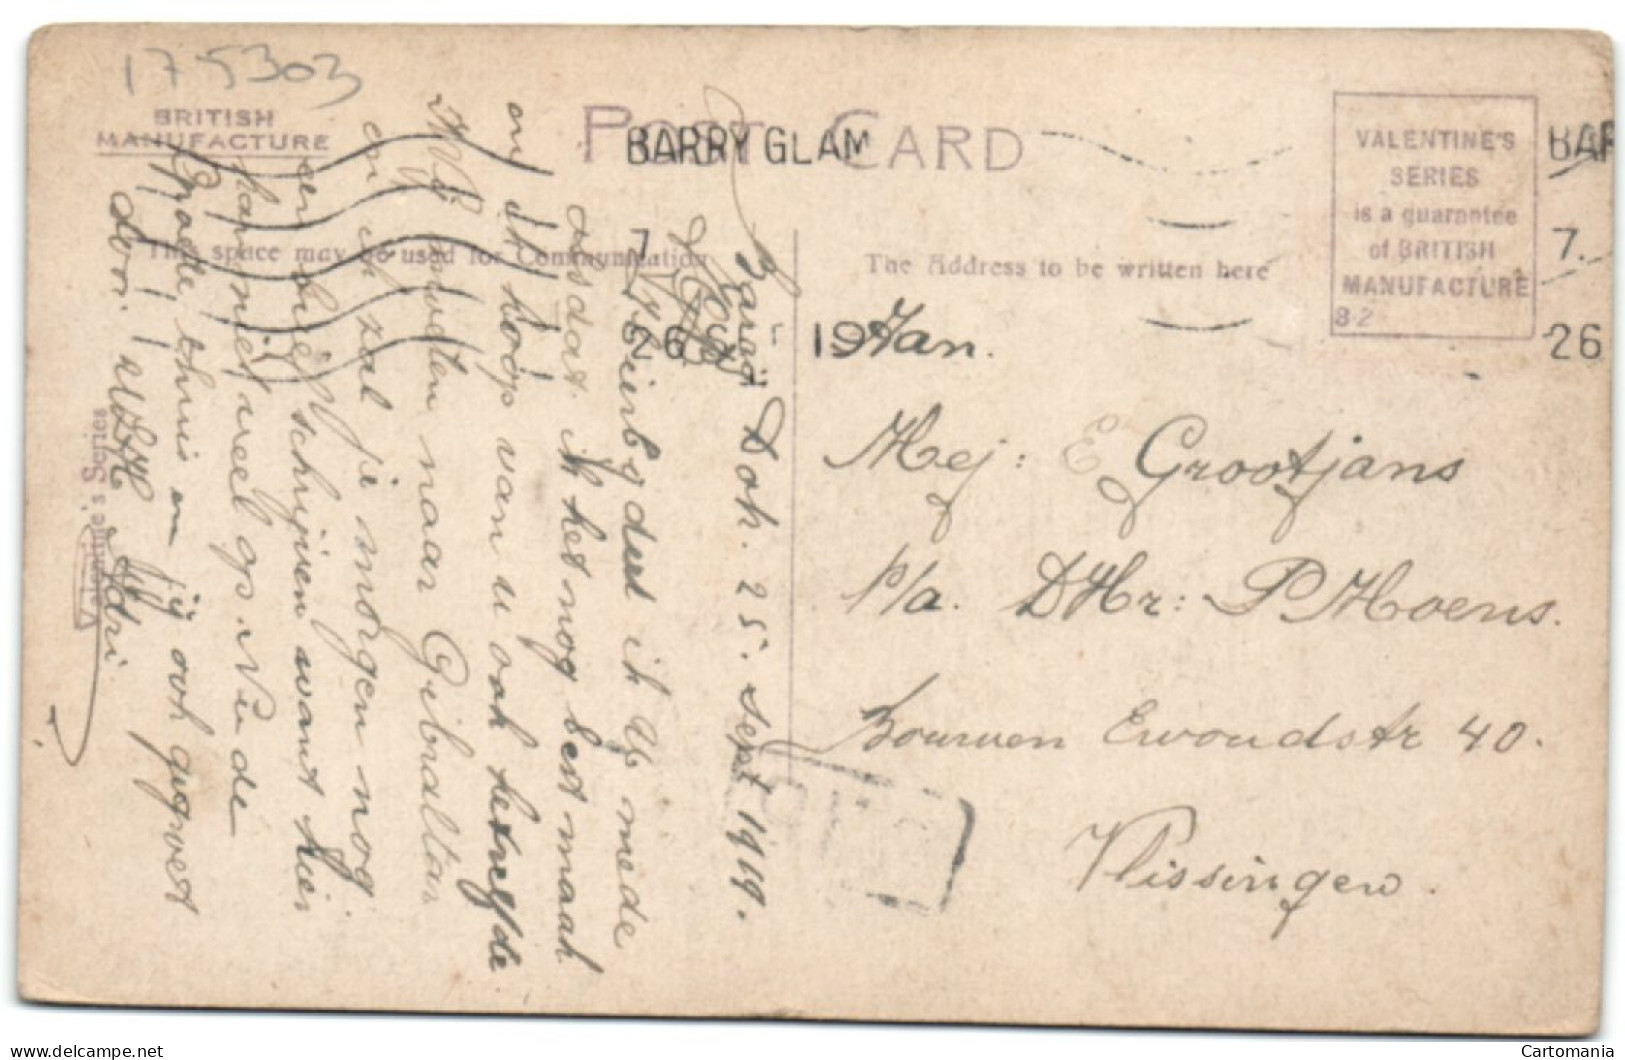 175303
BRITISH
MANUFACTURE
POST CARD
BARRY GLAM
7.
26 19
BAR
7.
26
VALENTINE'S
SERIES
is a guarantee
of BRITISH
MANUFACTURE
82
This space may be used for Communication
The Address to be written here
Valentine's Series
Barry Dok. 25. Sept 1919.
Hierbij deel ik U mede
alsdat ik het nog best maak
en ik hoop van u ook hetzelfde
N.B. moeten naar Gibraltar
en ik zal je morgen nog
een brief schrijven want hier
kan niet veel op. Nu de
Groete thuis en jij ook gegroet
door Adri
Aan.
Mej: E Grootjans
p/a. DHr: P Moens.
Bouwen Ewoudstr 40.
Vlissingen.
delcampe.net
Cartomania